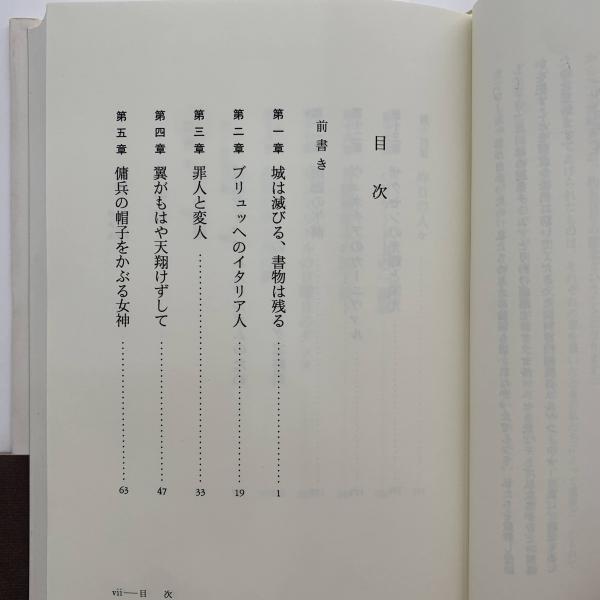 目次
前書き
第一章 城は滅びる、書物は残る……………1
第二章 ブリュッヘのイタリア人……………19
第三章 罪人と変人……………33
第四章 翼がもはや天翔けずして……………47
第五章 傭兵の帽子をかぶる女神……………63
vii──目 次